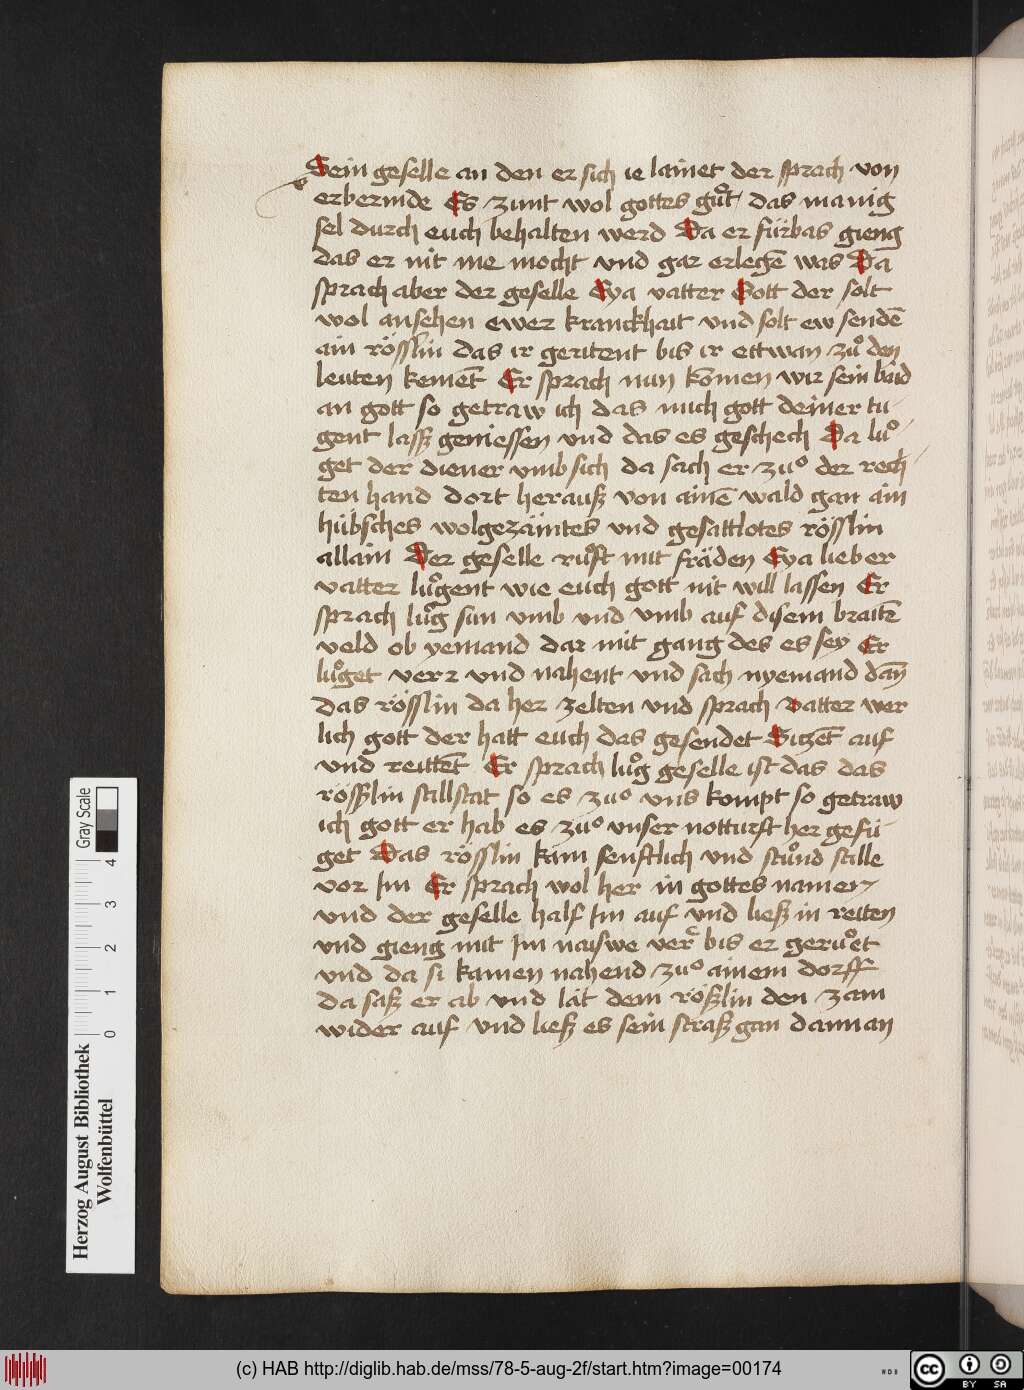 Sein geselle an den er sich ie lainet der sprach von
erbermde Es zimt wol gottes guͦt das manig
sel durch euch behalten werd Da er fürbas gieng
das er nit me mocht vnd gar erlegē was Da
sprach aber der geselle Eya vatter Gott der solt
wol ansehen ewer kranckhait vnd solt ew sendē
ain rösslin das ir geritent bis ir ettwan zuͦ den
leuten kemēt Er sprach nun komen wir sein baid
an gott so getraw ich das mich gott deiner tu
gent lassz geniessen vnd das es geschech Da luͦ
get der diener vmb sich da sach er zuͦ der rech
ten hand dort herausz von ainē wald gan ain
hübsches wolgezäimtes vnd gesattlotes rösslin
allain Der geselle ruͦft mit fräden Eya lieber
vatter luͦgent wie euch gott nit will lassen Er
sprach luͦg sun vmb vnd vmb auf disem braitē
veld ob yemand dar mit gang des es sey Er
luͦget verr vnd nahent vnd sach nyemand dañ
das rösslin da her zelten vnd sprach Vatter wer
lich gott der hatt euch das gesendet Sitzēt auf
vnd reittēt Er sprach luͦg geselle ist das das
rösszlin stillstat so es zuͦ vns kompt so getraw
ich gott er hab es zuͦ vnser notturft her gefü
get Das rösslin kam senftlich vnd stuͦnd stille
vor Im Er sprach wol her in gottes namen
vnd der geselle half Im auf vnd liesz in reiten
vnd gieng mit Im naiswe verr bis er geruͦet
vnd da si kamen nahend zuͦ ainem dorff
da sasz er ab vnd lät dem röszlin den zam
wider auf vnd liesz es sein strasz gan dannan
Gray Scale
4
3
2
1
0
Herzog August Bibliothek
Wolfenbüttel
(c) HAB http://diglib.hab.de/mss/78-5-aug-2f/start.htm?image=00174
cc BY SA